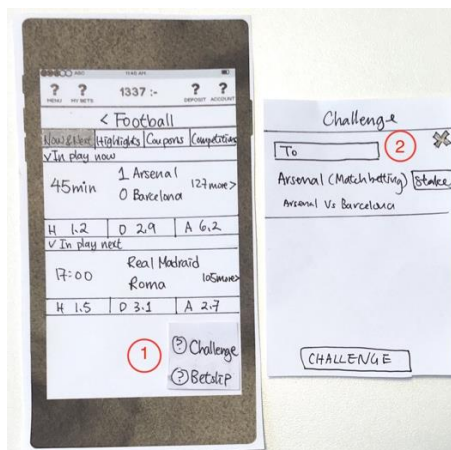 ABC 11:40 AM
? ? 1337 :- ? ?
MENU MY BETS DEPOSIT ACCOUNT
< Football
Now & Next Highlights Coupons Competitions
v In play now
45min 1 Arsenal 127 more >
0 Barcelona
H 1.2 D 2.9 A 6.2
v In play next
17:00 Real Madraid 105more>
Roma
H 1.5 D 3.1 A 2.7
1
? Challenge
? Betslip
Challenge
To
2
Arsenal (Match betting) Stake
Arsenal Vs Barcelona
CHALLENGE